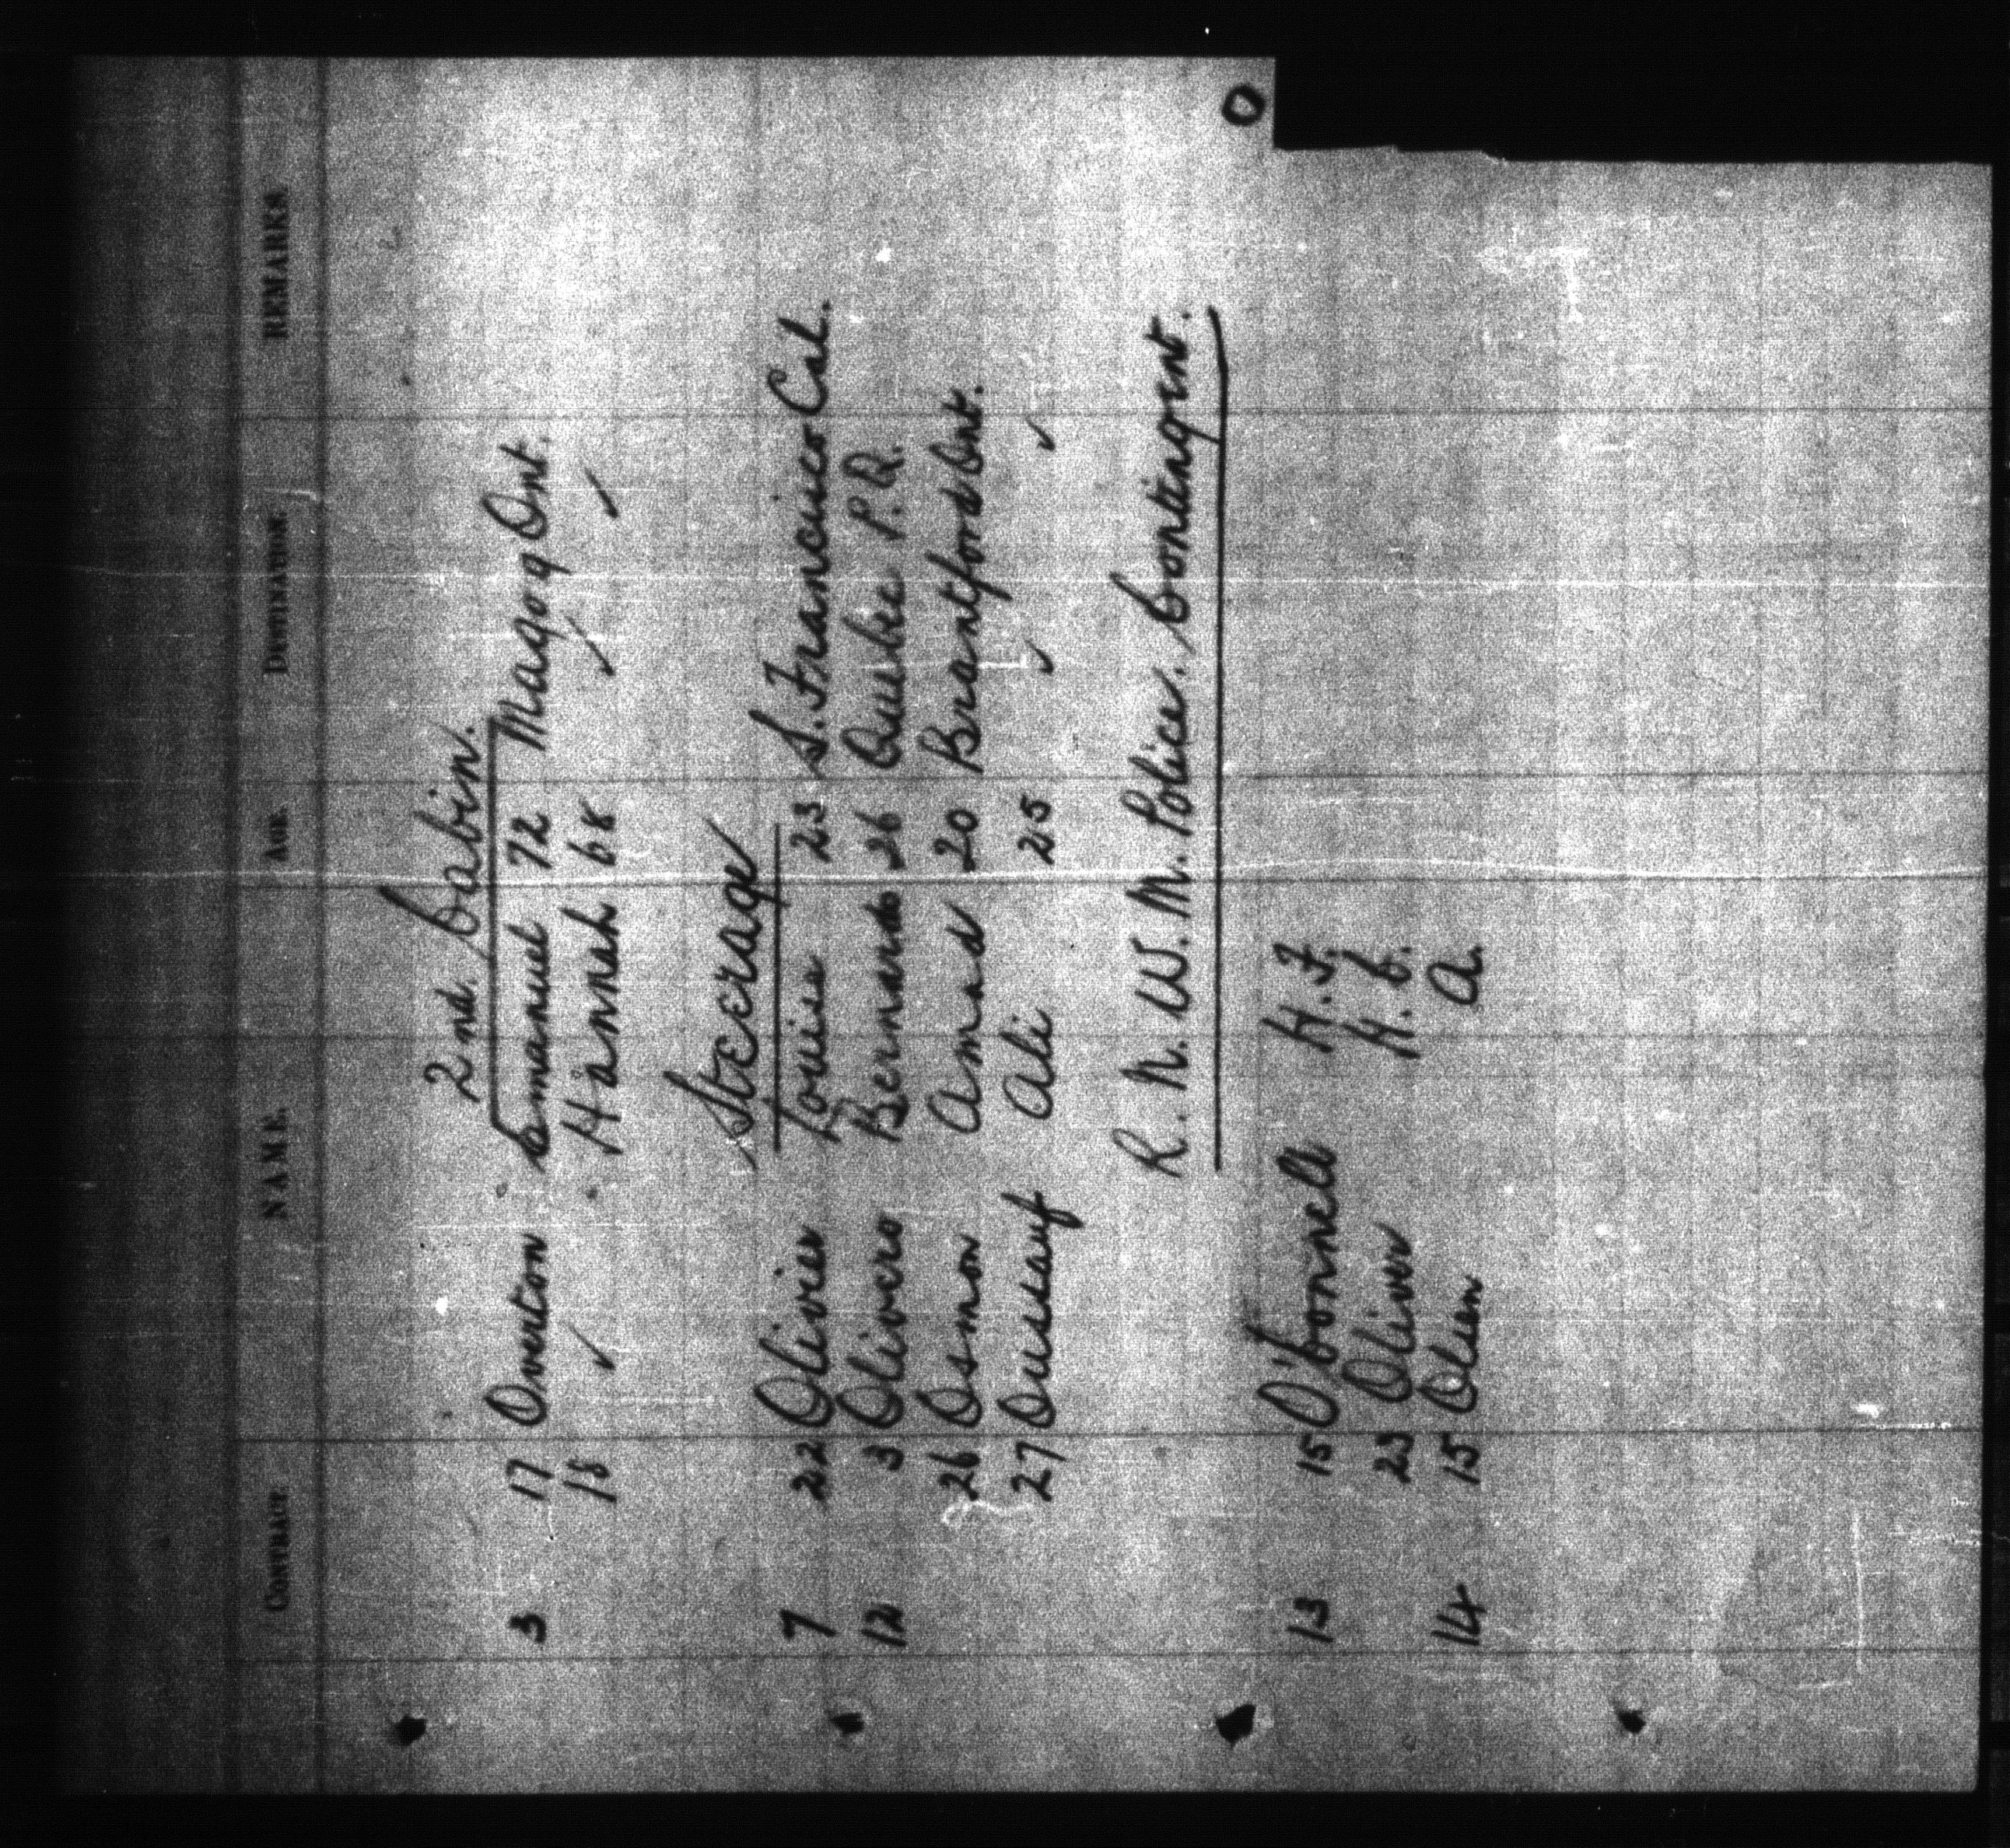 O
CONTRACT NAME. AGE. DESTINATION. REMARKS
2nd. Cabin.
3 17 Overton Emanuel 72 Magog Ont.
18 ✓ Hannah 68 ✓ ✓
Steerage
7 22 Olivier Louise 23 S. Francisco Cal.
12 3 Olivero Bernardo 26 Quebec P.Q.
26 Osmon Amad 20 Brantford Ont.
27 Oussauf Ali 25 ✓ ✓
R. N. W. M. Police. Contingent.
13 15 O'Connell H. F.
23 Oliver H. C.
14 15 Olsen A.